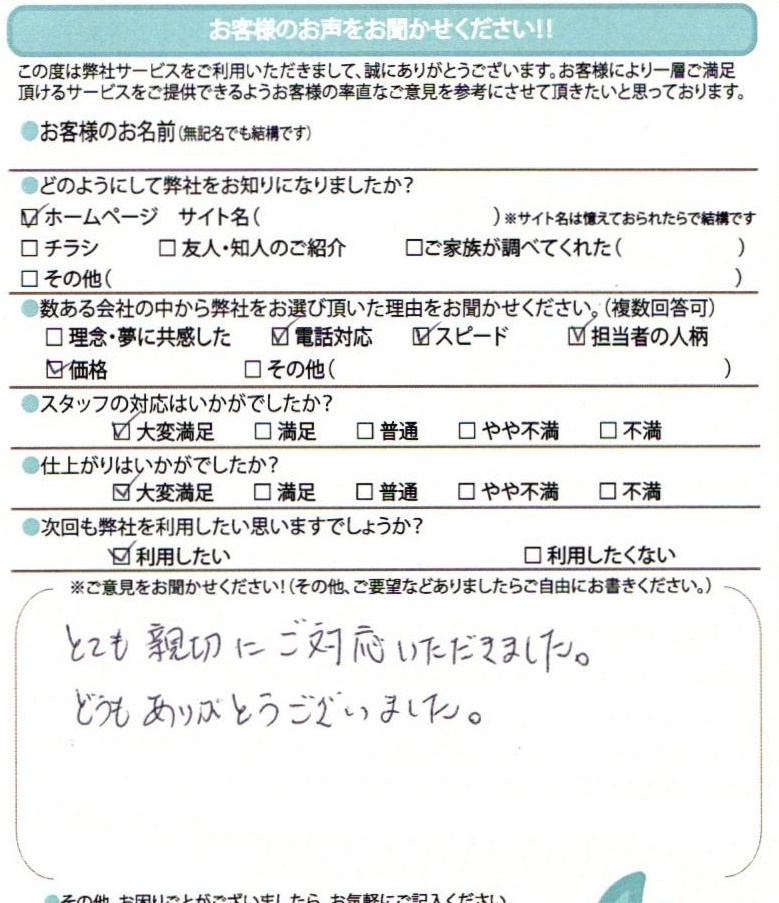 お客様のお声をお聞かせください!!
この度は弊社サービスをご利用いただきまして、誠にありがとうございます。お客様により一層ご満足
頂けるサービスをご提供できるようお客様の率直なご意見を参考にさせて頂きたいと思っております。
●お客様のお名前(無記名でも結構です)
●どのようにして弊社をお知りになりましたか?
☑ホームページ サイト名( )※サイト名は憶えておられたらで結構です
□チラシ □友人・知人のご紹介 □ご家族が調べてくれた( )
□その他( )
●数ある会社の中から弊社をお選び頂いた理由をお聞かせください。(複数回答可)
□理念・夢に共感した ☑電話対応 ☑スピード ☑担当者の人柄
☑価格 □その他( )
●スタッフの対応はいかがでしたか?
☑大変満足 □満足 □普通 □やや不満 □不満
●仕上がりはいかがでしたか?
☑大変満足 □満足 □普通 □やや不満 □不満
●次回も弊社を利用したい思いますでしょうか?
☑利用したい □利用したくない
※ご意見をお聞かせください!(その他、ご要望などありましたらご自由にお書きください。)
とても親切にご対応いただきました。
どうもありがとうございました。
●その他、お困りごとがございましたら、お気軽にご記入ください